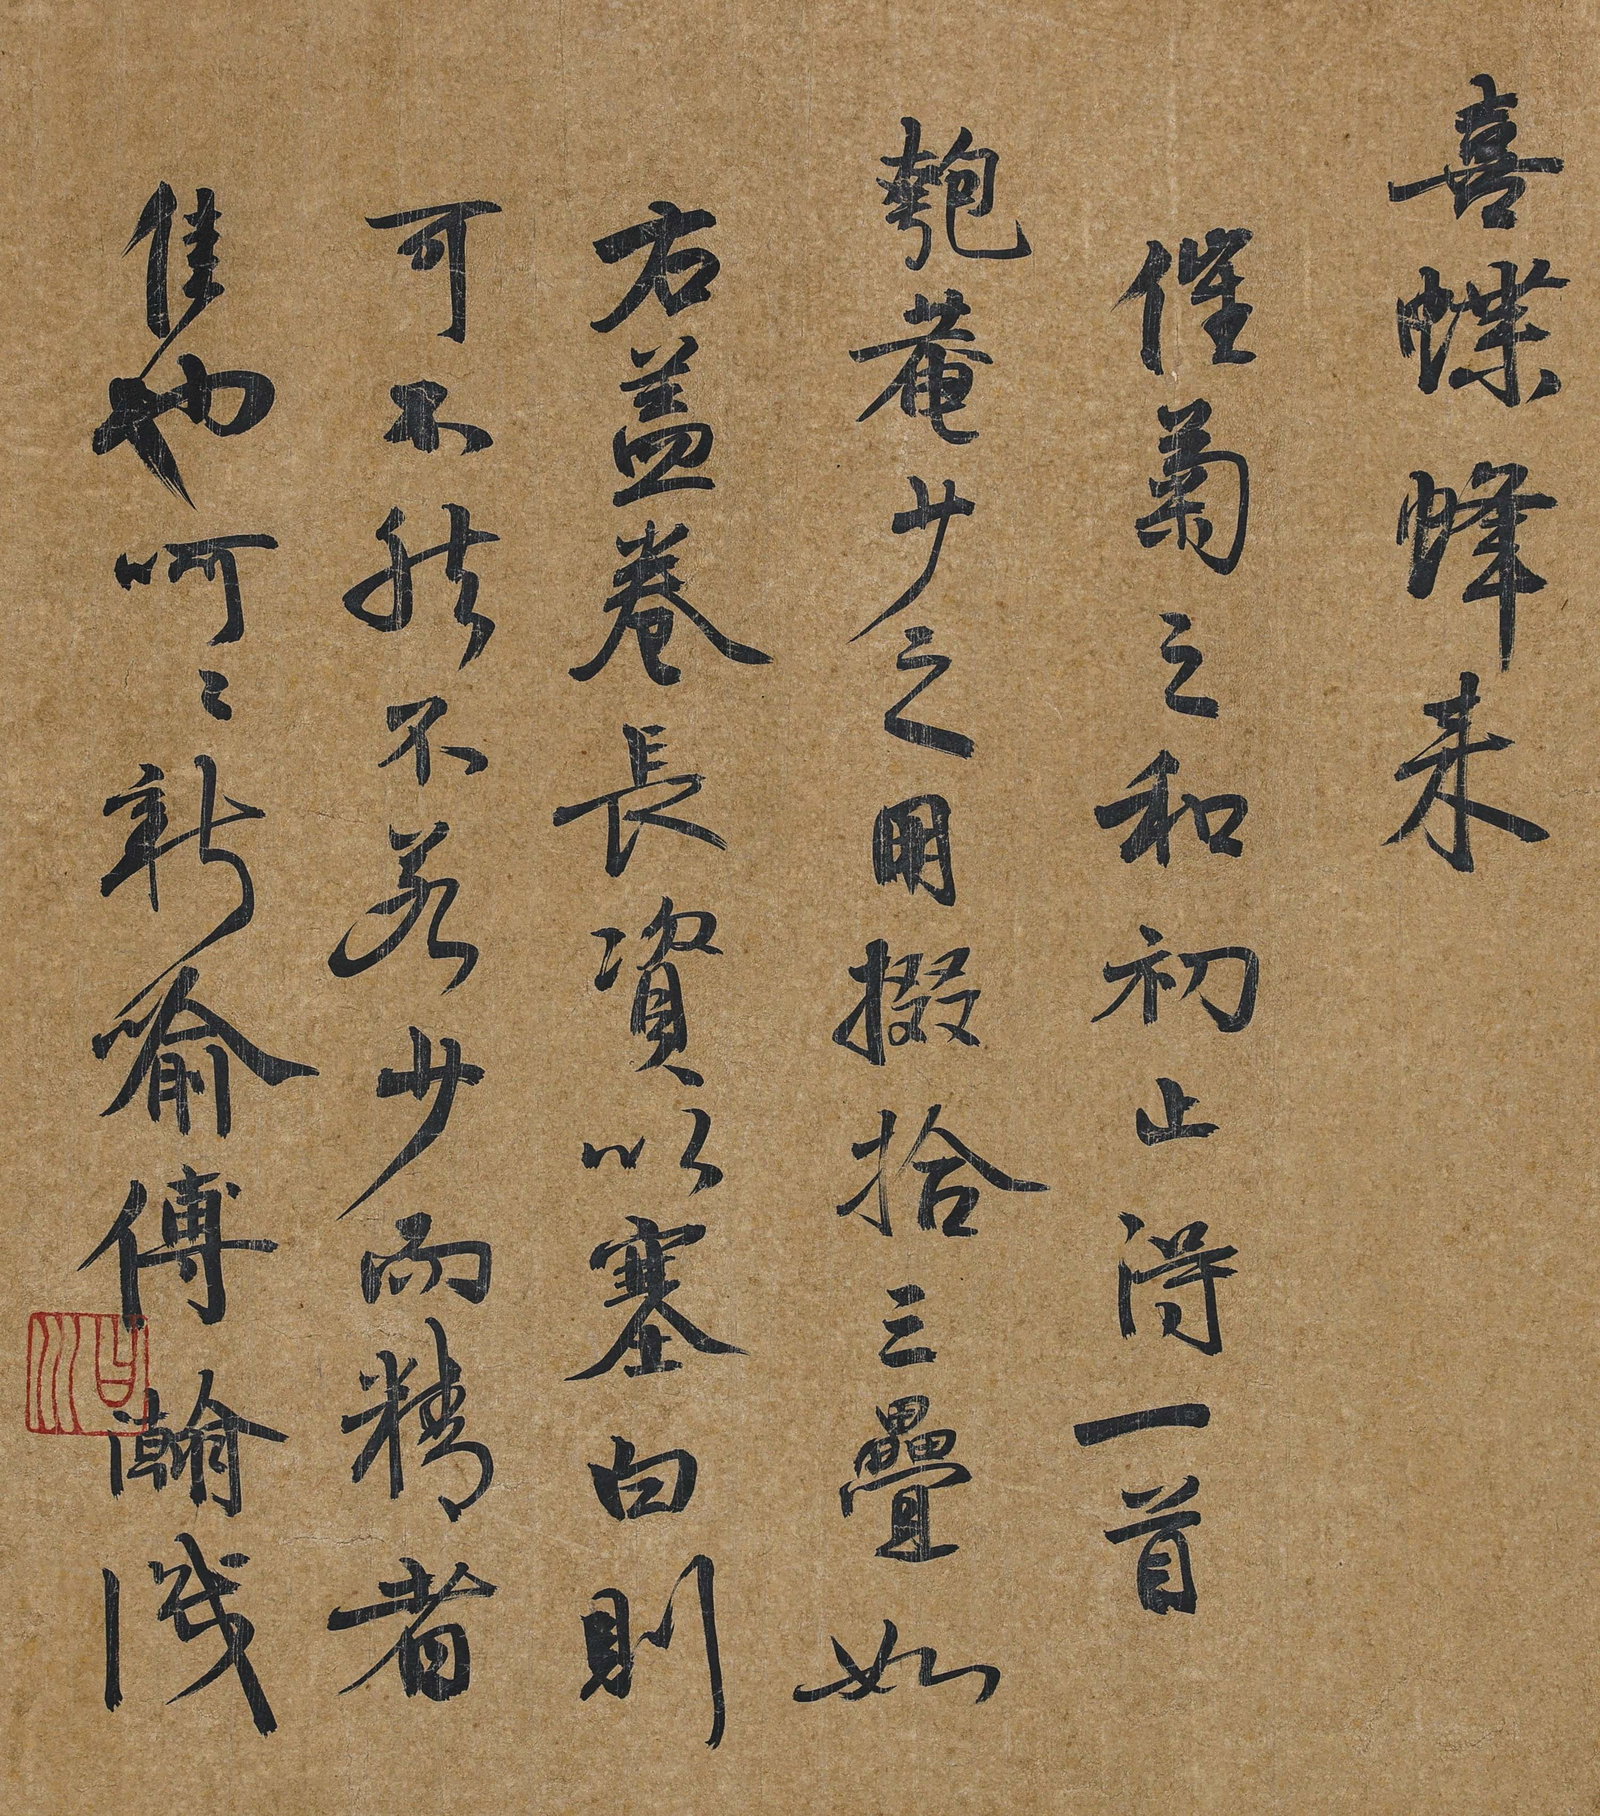 喜蝶蜂未
催菊之和初止得一首
匏菴少之用掇拾三疊如
右蓋卷長資以塞白則
可不然不若少而精者
佳也呵〻新喻傅瀚識